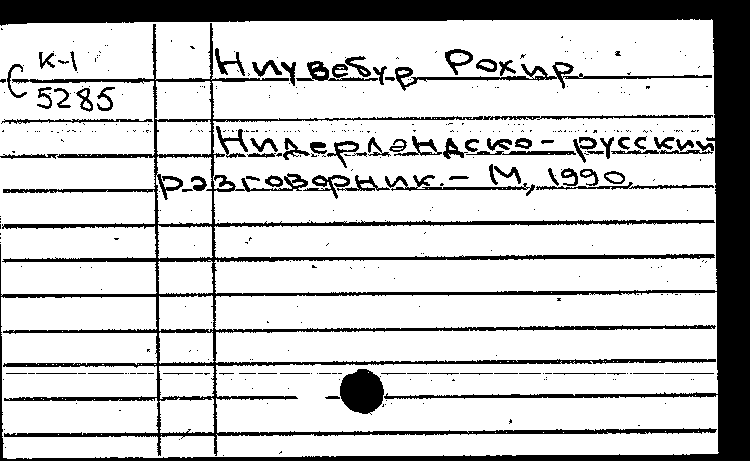 С К-1
5285
Ниувебур Рохир.
Нидерландско-русский
разговорник.- М., 1990.